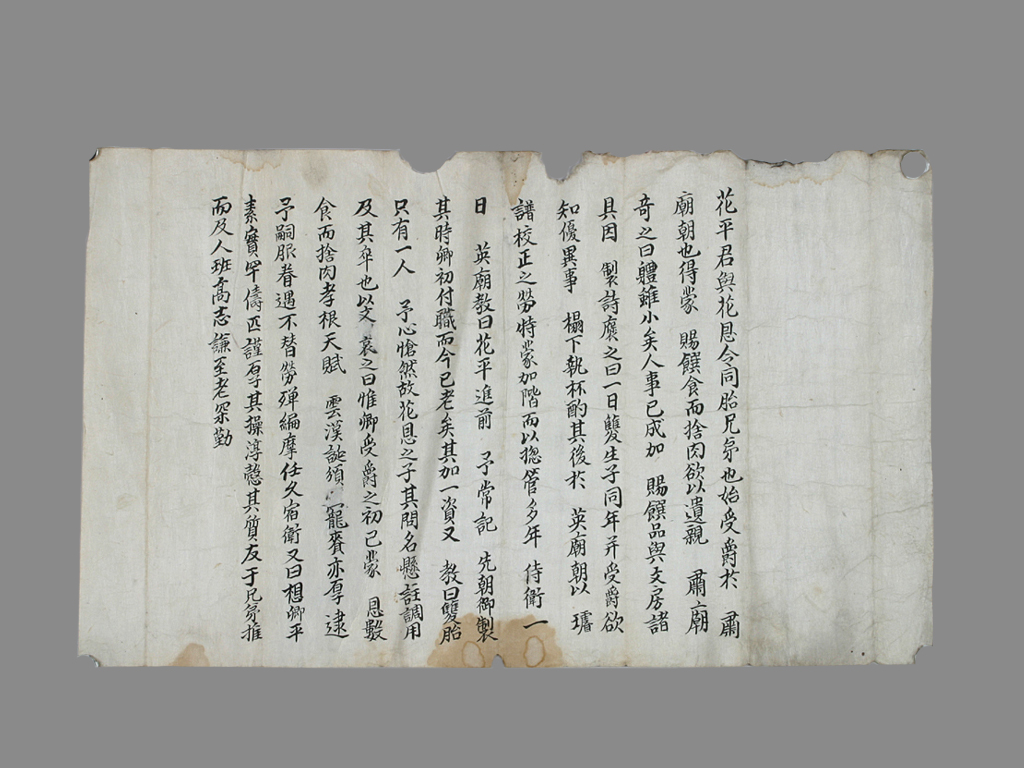 花平君與花恩令同胎兄弟也始受爵於 肅
廟朝也得蒙 賜饌食而捨肉欲以遺親 肅廟
奇之曰軆雖小矣人事已成加 賜饌品與文房諸
具因 製詩褒之曰一日雙生子同年幷受爵欲
知優異事 榻下執杯酌其後於 英廟朝以 璿
譜校正之勞特蒙加階而以摠管多年 侍衛一
日 英廟敎曰花平進前 予常記 先朝御製
其時卿初付職而今已老矣其加一資又 敎曰雙胎
只有一人 予心愴然故花恩之子其問名懸註調用
及其卒也以文哀之曰惟卿受爵之初已蒙 恩數
食而捨肉孝根天賦 雲漢誕頒 寵賚亦厚逮
予嗣服眷遇不替勞殫編摩任久宿衛又曰想卿平
素實罕儔匹謹厚其操淳慤其質友于兄弟推
而及人班高志謙至老深勤